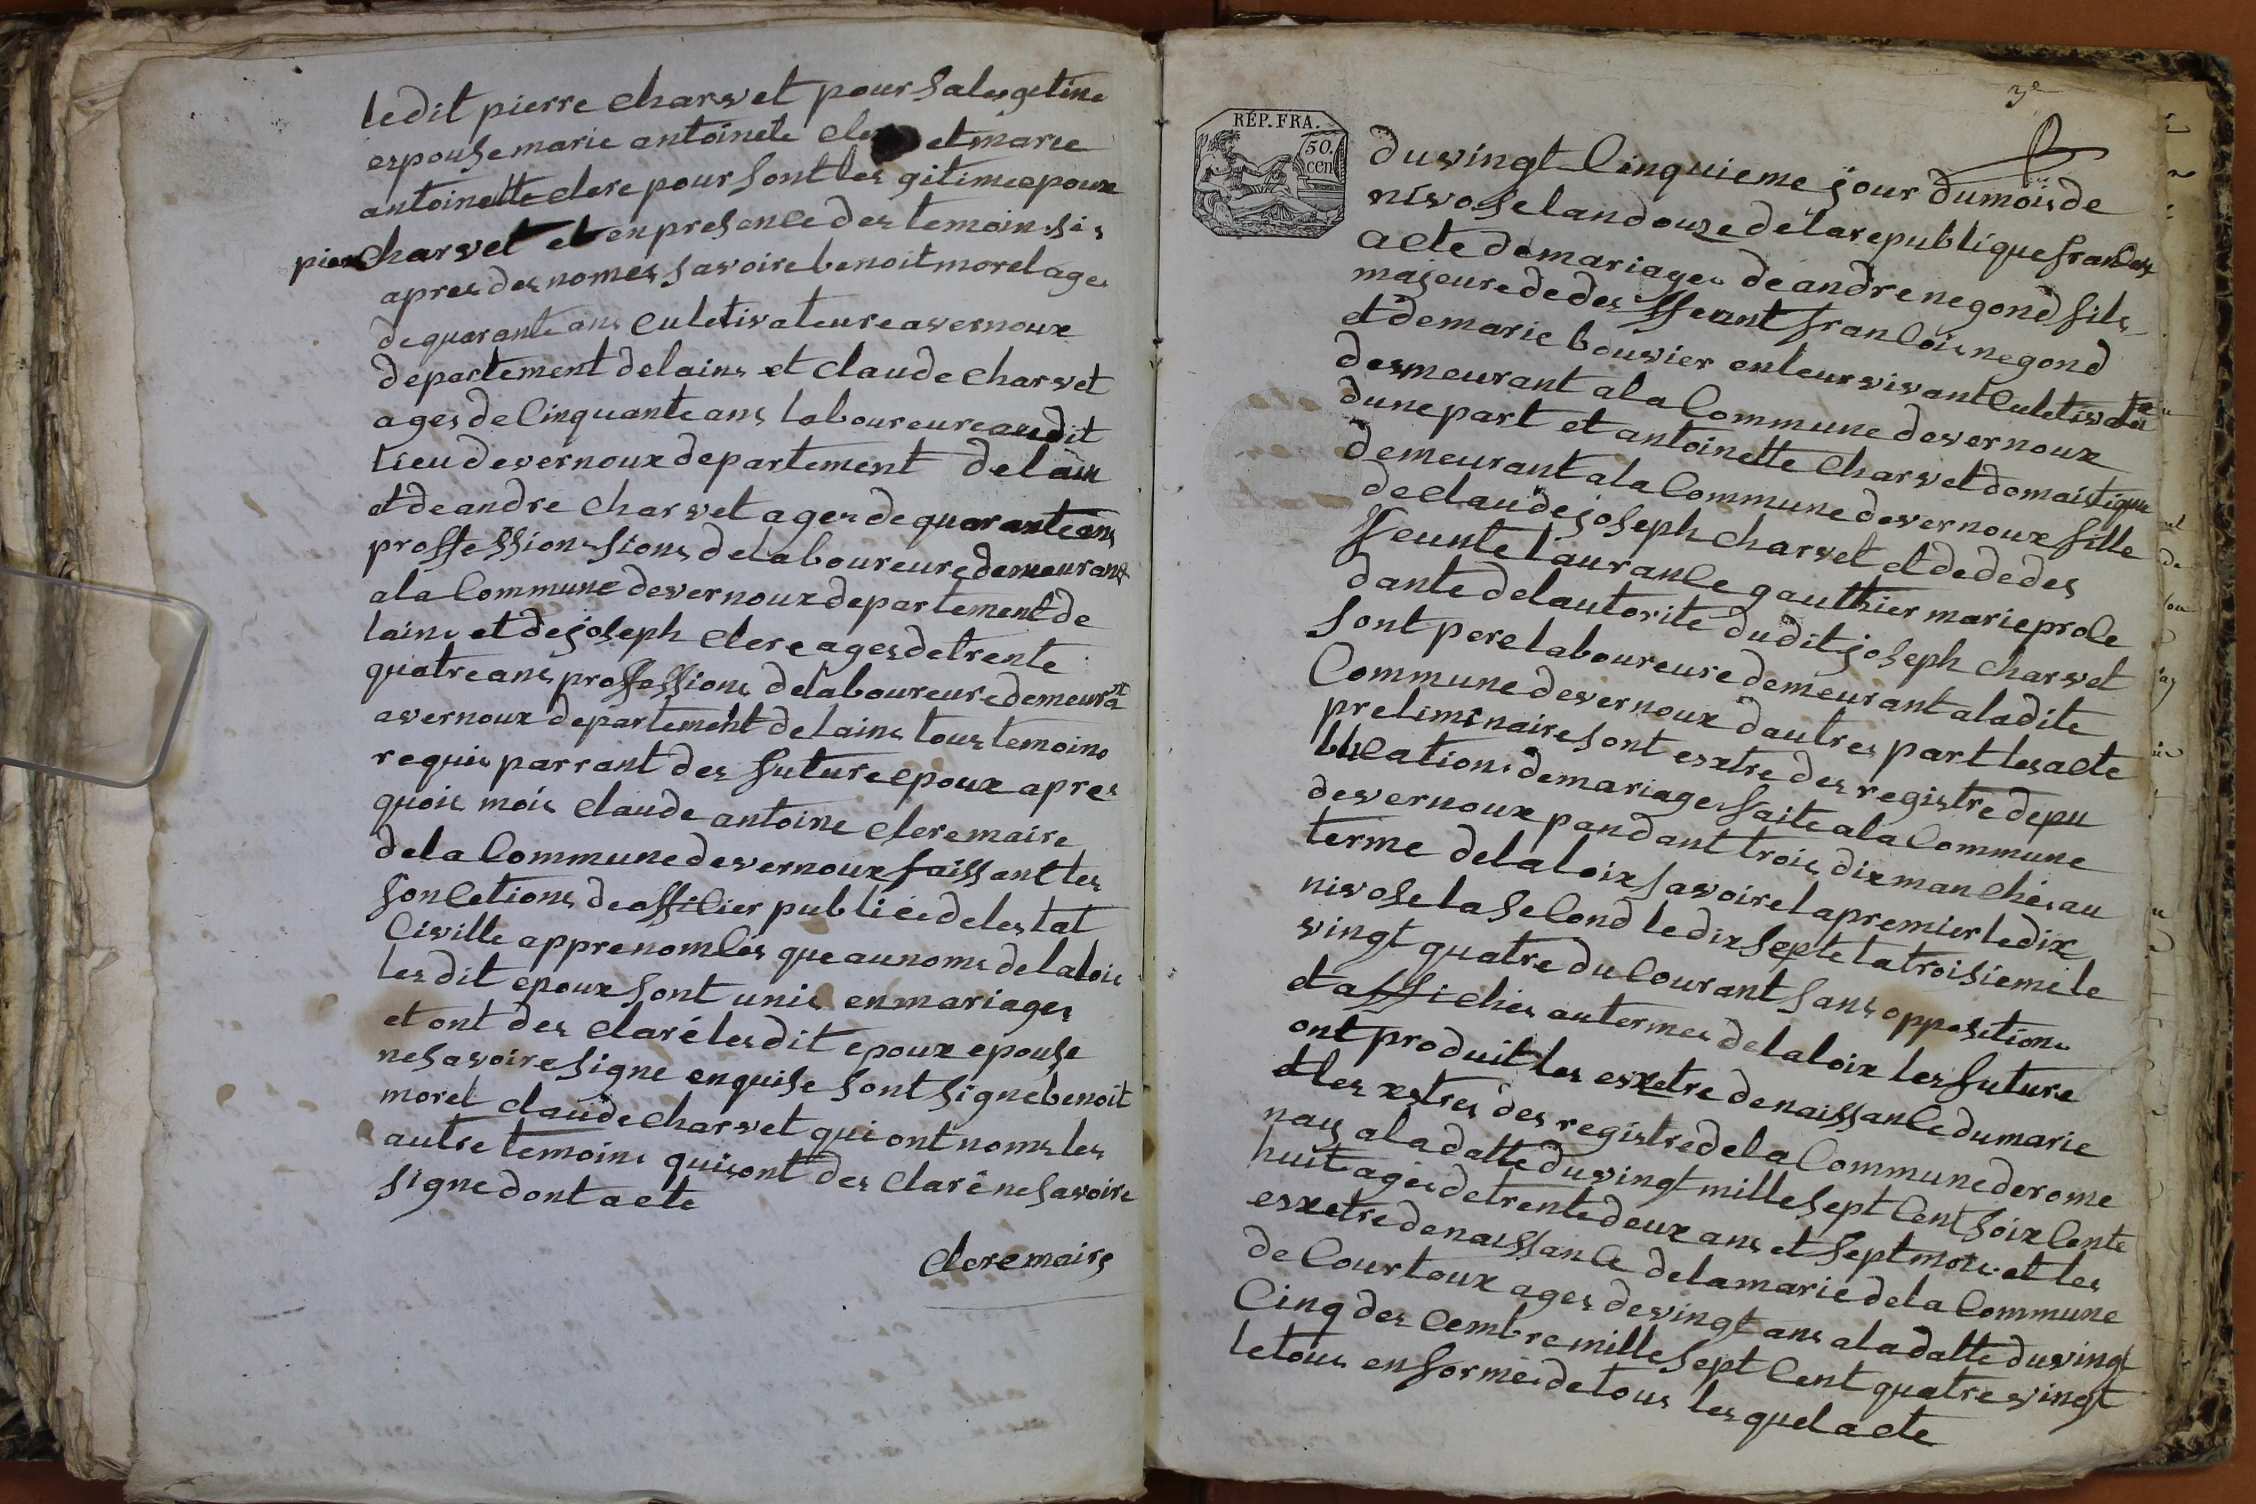 ledit pierre charvet pour sa legetime
espouse marie antoinete clere et marie
antoinette clere pour sont les gitime epoux
pierre charvet et en presence des temoin si
apres des nomes savoire benoit morel ages
de quarante ans culetivateure a vernoux
departement delains et claude charvet
ages de cinquante ans laboureure audit
lieu de vernoux departement delain
et de andre charvet ages de quarante ans
proffession sions de laboureure demeurant
a la commune de vernoux departement de
lains et de joseph clere ages de trente
quatre ans proffessions de laboureure demeurant
a vernoux departement delains tous temoins
requis parrant des future epoux apres
quois mois claude antoine clere maire
de la commune de vernoux faissant les
fonctions de officier publice de lestat
civille apprenomces que au noms de la lois
les dit epoux sont unis en mariages
et ont des claré les dit epoux epouse
ne savoire signe en quise sont signe benoit
morel claude charvet qui ont noms les
autre temoins quisont des claré ne savoire
signe dont acte
clere maire
3e
RÉP. FRA.
50.
cen
du vingt cinquieme jour du mois de
nivose lan douze de la republique francais
acte de mariages de andre negond fils
majeure de des ffeunt francois negond
et de marie bouvier en leur vivant culetivate
desmeurant a la commune de vernoux
dune part et antoinette charvet domaistique
demeurant a la commune de vernoux fille
de claude joseph charvet et de de des
ffeunte laurance gauthier marie proce
dante de lautorité dudit joseph charvet
sont pere laboureure demeurant a ladite
commune de vernoux dautres part les acte
preliminaire sont esxtre des registre de pu
blication de mariages faite a la commune
de vernoux pandant trois dix manchés au
terme de la loix savoire la premier le dix
nivose la second le dix septe la troisieme le
vingt quatre du courant sans oppositions
et affichés au termes de la loix les future
ont produit les esxetre de naissance du marie
et les xstres des registre de la commune de rome
nay a la datte du vingt mille sept cent soix cente
huit ages de trente deux ans et sept mois et les
esxetre de naissance de la marie de la commune
de courtoux ages de vingt ans a la datte du vingt
cinq des cembre mille sept cent quatre vingt
le tous en formes de tous les quel acte